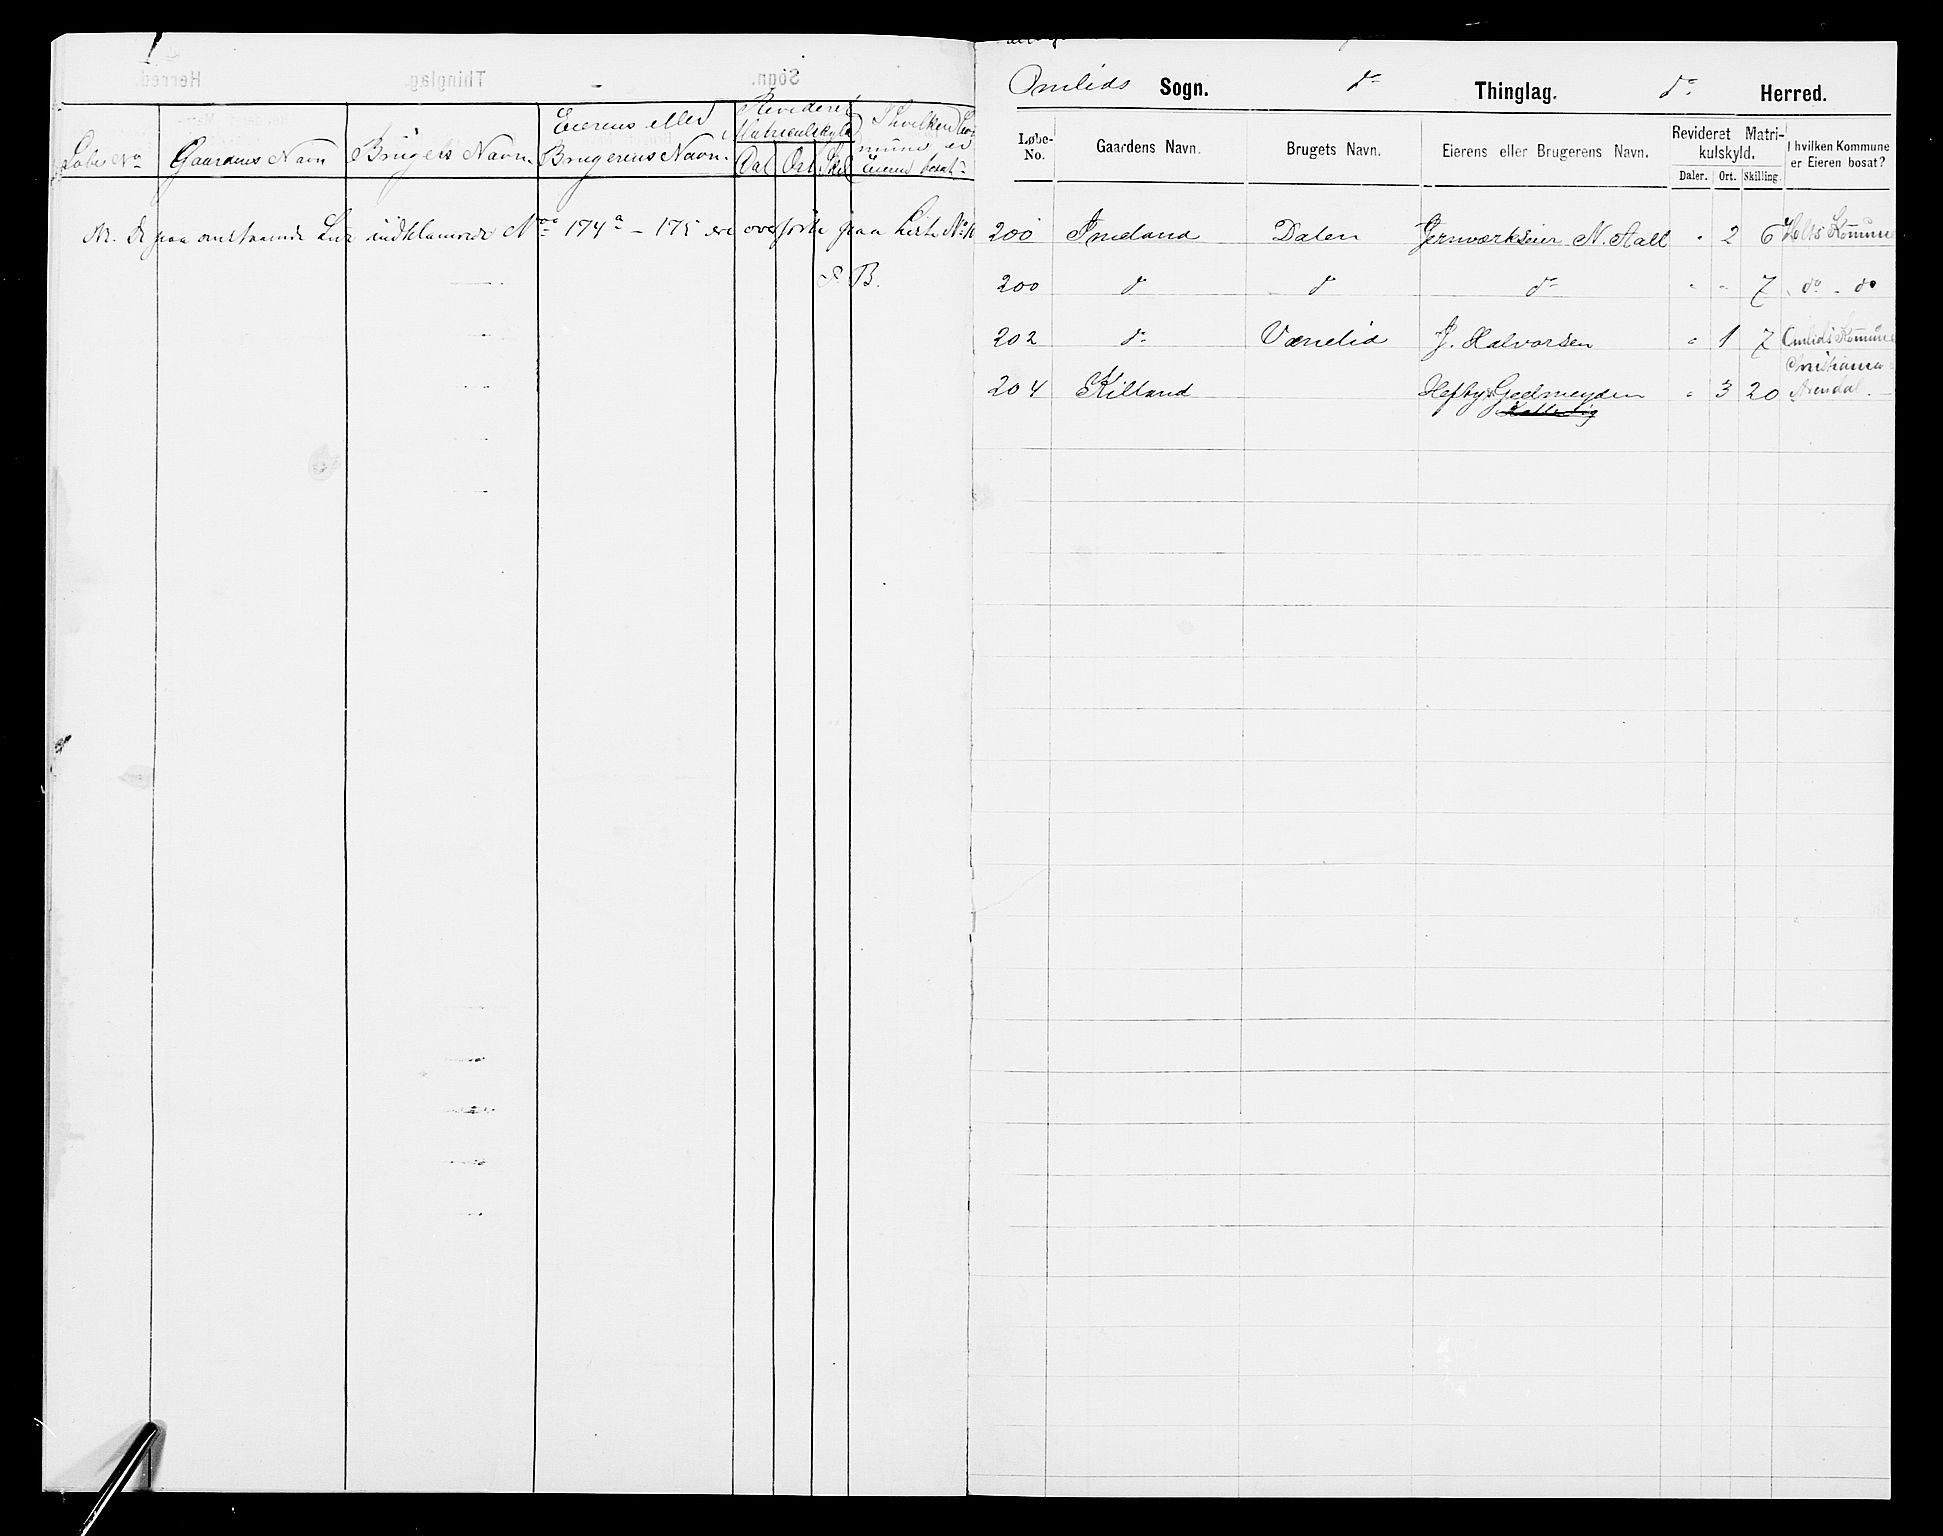 Løbe No Gaardens Navn Brugets Navn. Eierens eller Brugerens Navn. Revideret Matriculskyld Dal Ort Skil I hvilken Kommune er Eieren bosat?
NB. De paa omstaaende indklamrede Nos 174a – 175 ere overførte paa Liste No
B.
Omlids Sogn. do Thinglag. do Herred.
Løbe-No. Gaardens Navn. Brugets Navn. Eierens eller Brugerens Navn. Revideret Matrikulskyld. Daler. Ort. Skilling. I hvilken Kommune er Eieren bosat?
200 Imeland Dalen Jernværkseier N. Aall " 2 6 Holts Kommune
200 do do do " " 7 do - do
202 do Vænelid J. Halvorsen " 1 7 Omlids Kommune
204 Killand Heftye Gedmeyden " 3 20 Christiania Arendal.